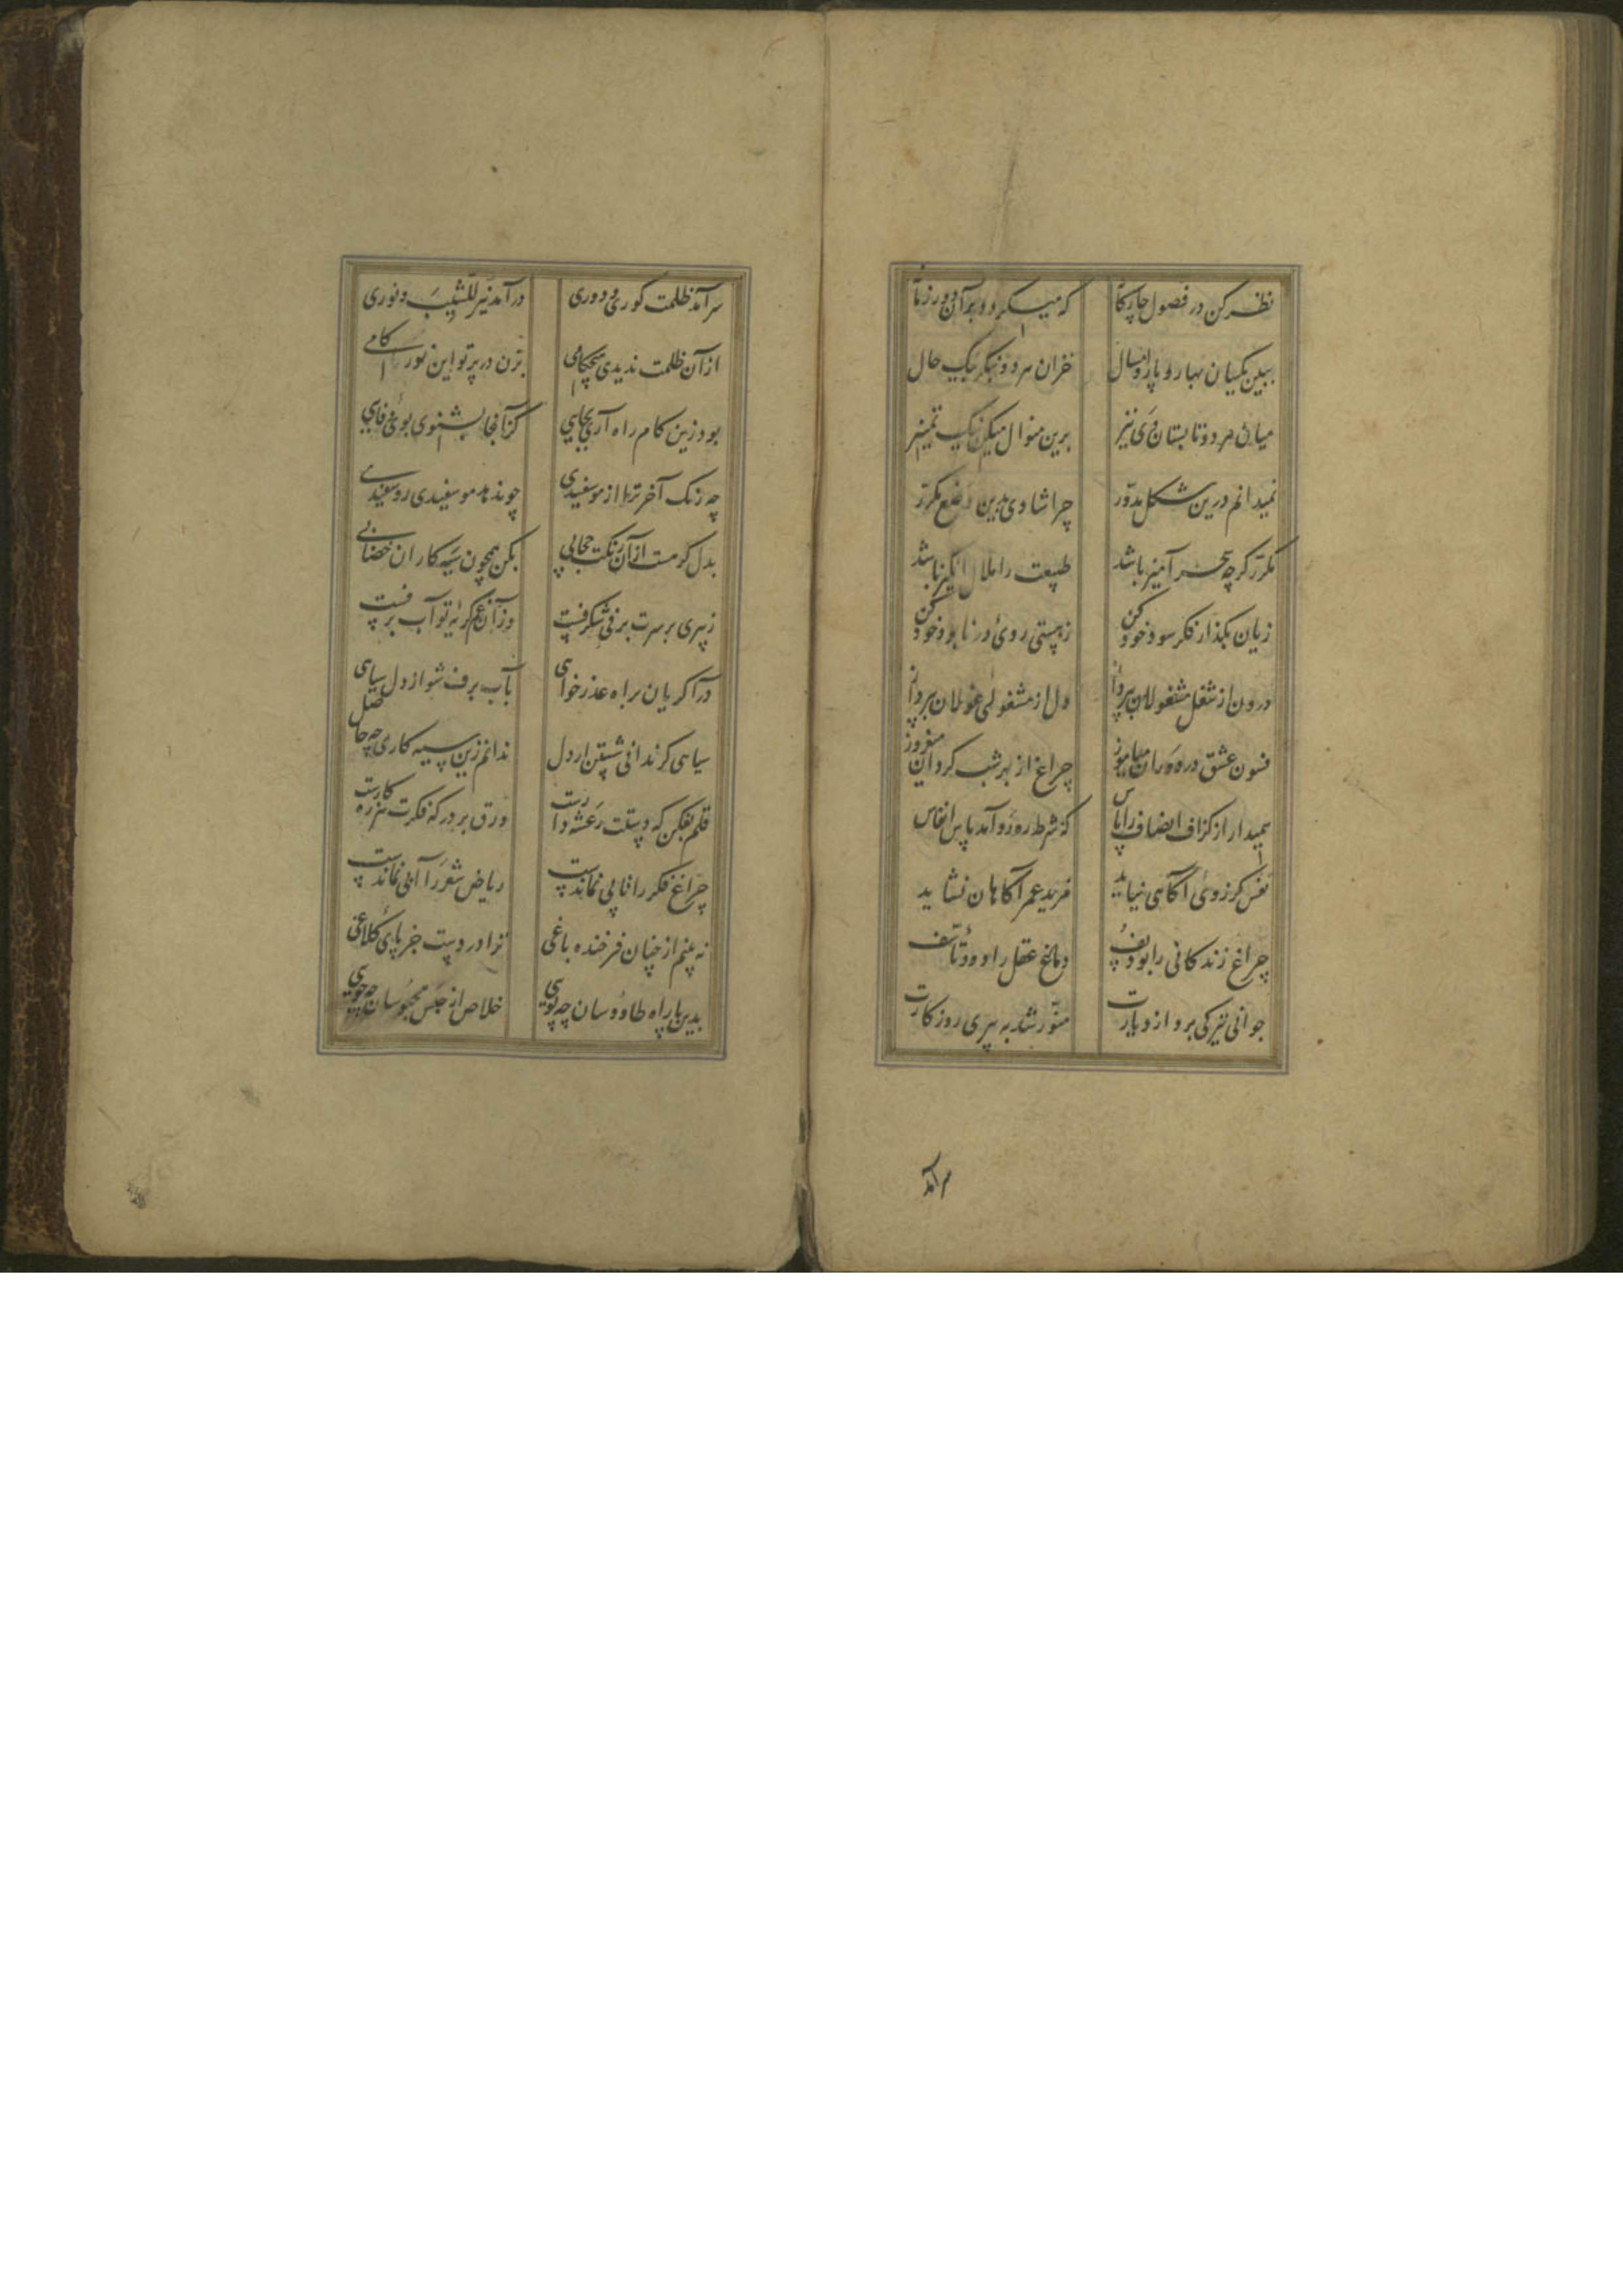 نظر کن در فصول چارگانه که میگردد بر آن دور زمانه
ببین یکسان بهار و پار و امسال خزان هر دو بنگر بیک حال
میان هر دو تابستان و دی نیز برین منوال میکن نیک تمییز
نمیدانم درین شکل مدور چرا شادی بدین وضع مکرر
مکرر گرچه سحر آمیز باشد طبیعت را ملال انگیز باشد
زیان بگذار فکر سود خود کن ز هستی روی در نابود خود کن
درون از شغل مشغولان بپرداز دل از مشغولی غولان بپرداز
فسون عشق میاموز چراغ از بهر شب میفروز
میدار از گزاف انفاس را پاس که شرط روز و آمد پاس انفاس
نفس کز روی آگاهی نیاید مزید عمر آگاهان نشاید
چراغ زندگانی را بود پف دماغ عقل را دود تاسف
جوانی تیرگی برد از دیارت منور شد به پیری روزگارت
سرآمد
سرآمد ظلمت کوری و دوری درآمد نیر للشیب و نوری
از آن ظلمت ندیدی هیچ کامی بزن در پرتو این نور گامی
بود زین گام راه آری بجایی کز آنجا بشنوی بوی وفایی
چه رنگ آخر ترا از مو سفیدی چو ندهد مو سفیدی رو سفیدی
بدل گر هست از آن رنگت حجابی بکن همچون سیه کاران خضابی
ز پیری بر سرت برفی شگرفست وز آن غم گریه تو آب برفست
درآ گریان براه عذر خواهی بآب برف شو از دل سیاهی
سیاهی گر ندانی شستن از دل ندانم زین سیه کاری چه حاصل
قلم بفکن که دستت رعشه دارست ورق بر در که فکرت هرزه کارست
چراغ فکر را تابی نماندست ریاض شعر را آبی نماندست
نه بینم از چنان فرخنده باغی ترا در دست جز پای کلاغی
بدین پا راه طاوسان چه پویی خلاص از حبس محبوسان چه جویی